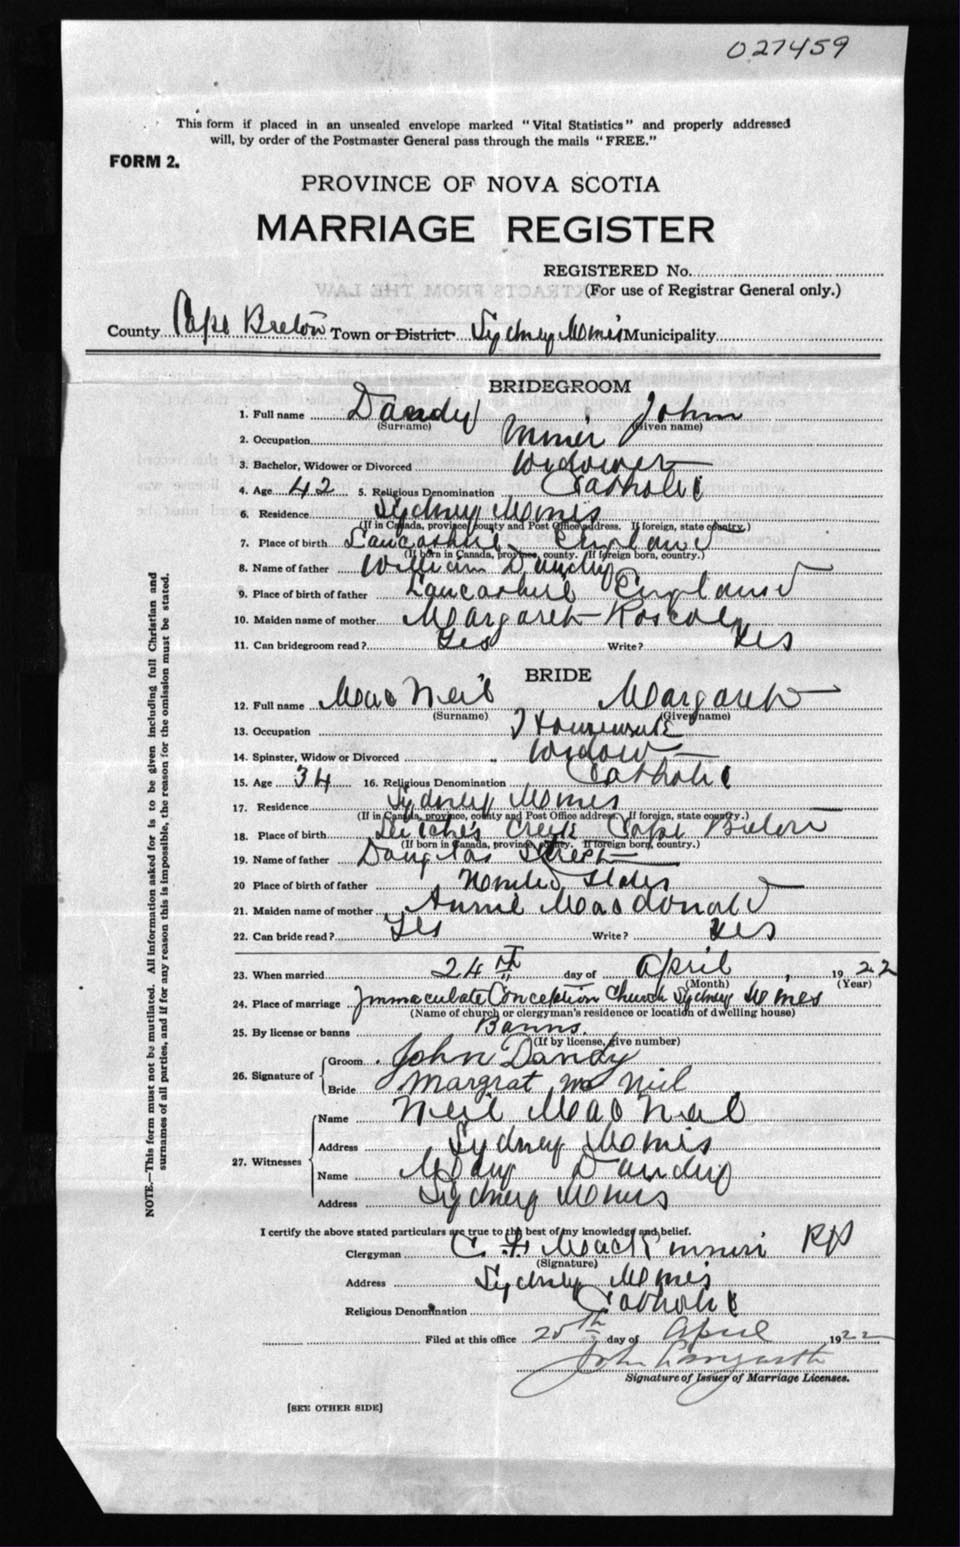 027459
This form if placed in an unsealed envelope marked "Vital Statistics" and properly addressed
will, by order of the Postmaster General pass through the mails "FREE."
FORM 2.
PROVINCE OF NOVA SCOTIA
MARRIAGE REGISTER
REGISTERED No.
(For use of Registrar General only.)
EXTRACTS FROM THE LAW
County Cape Breton Town or District Sydney Mines Municipality
BRIDEGROOM
1. Full name Dandy John
(Surname) (Given name)
2. Occupation Miner
3. Bachelor, Widower or Divorced Widower
4. Age 42 5. Religious Denomination Catholic
6. Residence Sydney Mines
(If in Canada, province, county and Post Office address. If foreign, state country.)
7. Place of birth Lancashire England
(If born in Canada, province, county. If foreign born, country.)
8. Name of father William Dandy
9. Place of birth of father Lancashire England
10. Maiden name of mother Margaret Roscoe
11. Can bridegroom read? Yes Write? Yes
BRIDE
12. Full name MacNeil Margaret
(Surname) (Given name)
13. Occupation Housework
14. Spinster, Widow or Divorced Widow
15. Age 34 16. Religious Denomination Catholic
17. Residence Sydney Mines
(If in Canada, province, county and Post Office address. If foreign, state country.)
18. Place of birth Leitches Creek Cape Breton
(If born in Canada, province, county. If foreign born, country.)
19. Name of father Douglas
20 Place of birth of father United States
21. Maiden name of mother Annie MacDonald
22. Can bride read? Yes Write? Yes
23. When married 24th day of April, 1922
(Month) (Year)
24. Place of marriage Immaculate Conception Church Sydney Mines
(Name of church or clergyman's residence or location of dwelling house)
25. By license or banns Banns.
(If by license, give number)
26. Signature of Groom John Dandy
Bride Margrat Mc Neil
27. Witnesses Name Neil MacNeil
Address Sydney Mines
Name Mary Dandy
Address Sydney Mines
NOTE.—This form must not be mutilated. All information asked for is to be given including full Christian and
surnames of all parties, and if for any reason this is impossible, the reason for the omission must be stated.
I certify the above stated particulars are true to the best of my knowledge and belief.
Clergyman C F MacKinnon PP
(Signature)
Address Sydney Mines
Religious Denomination Catholic
Filed at this office 25th day of April 1922
John
Signature of Issuer of Marriage Licenses.
[SEE OTHER SIDE]